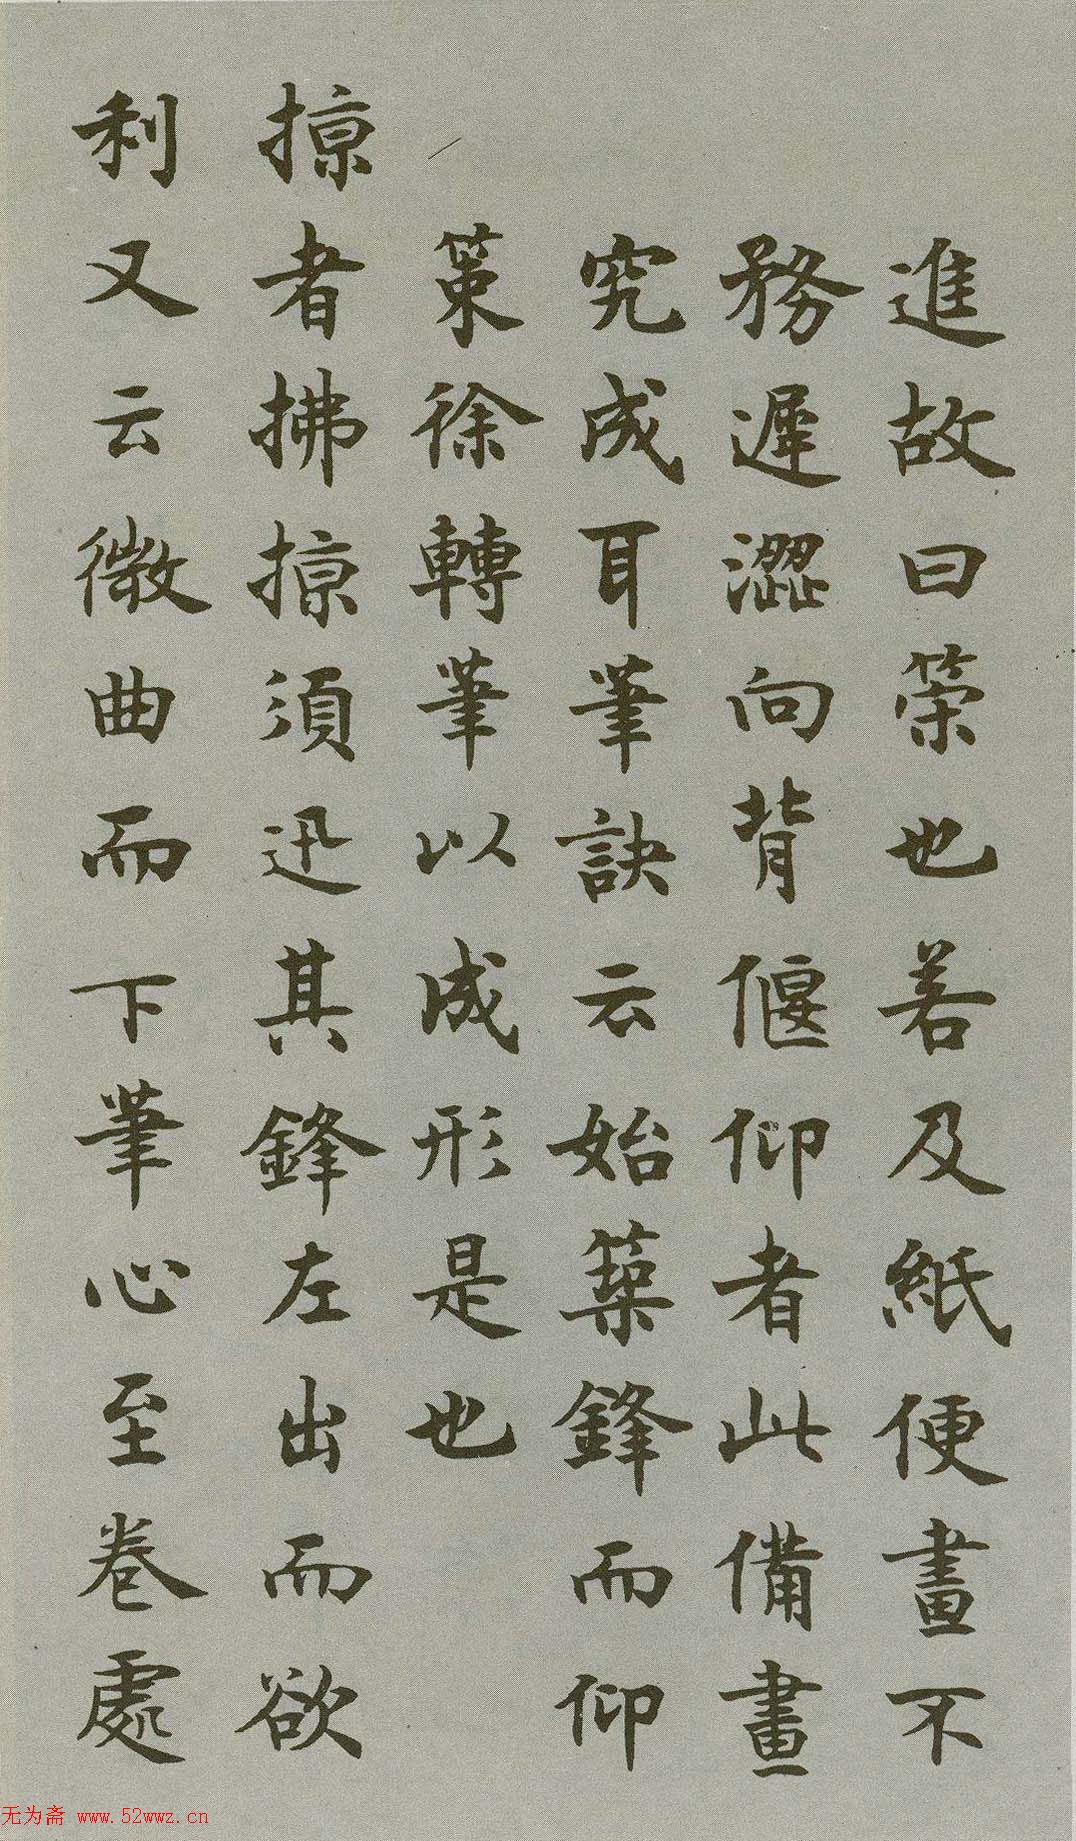 進故曰筞也若及紙便畫不
務遲澀向背偃仰者此備畫
究成耳筆訣云始築鋒而仰
策徐轉筆以成形是也
掠者拂掠須迅其鋒左出而欲
利又云微曲而下筆心至卷處
无为斋 www.52wwz.cn